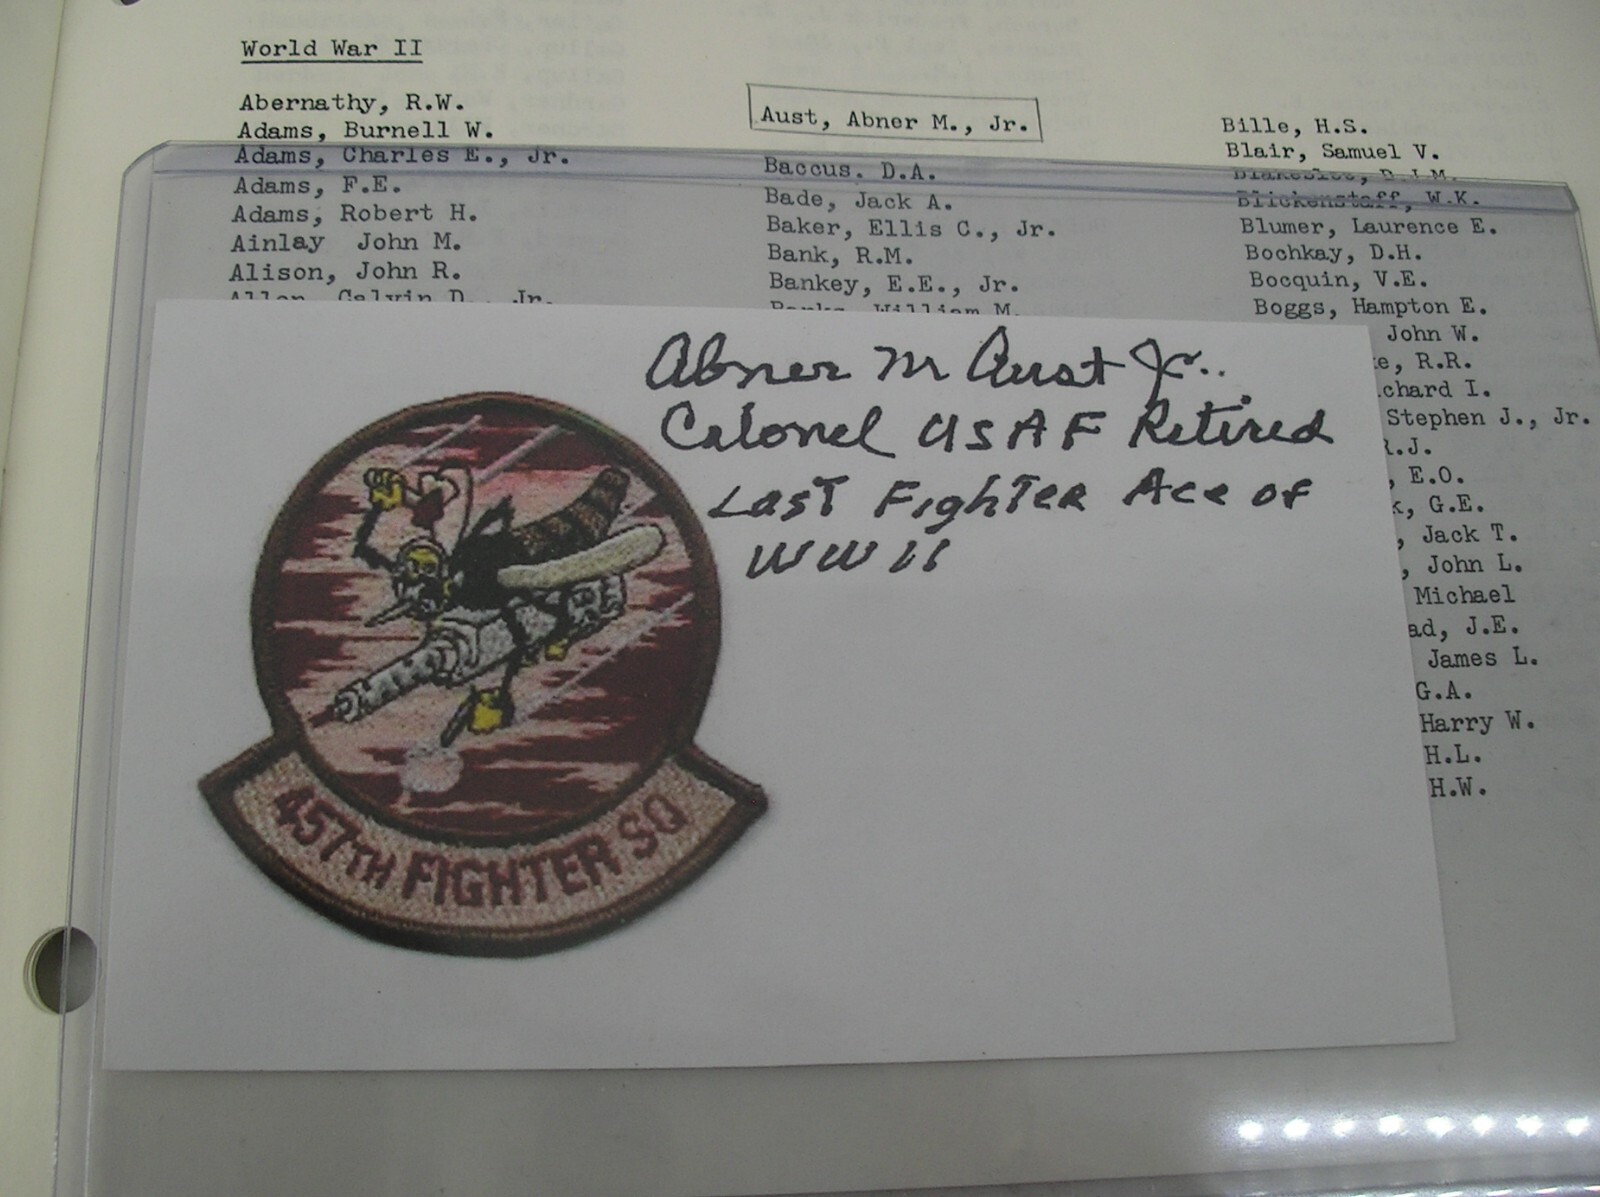 World War II
Abernathy, R.W.
Adams, Burnell W.
Adams, Charles E., Jr.
Adams, F.E.
Adams, Robert H.
Ainlay John M.
Alison, John R.
Allen, Calvin D., Jr.
Aust, Abner M., Jr.
Baccus. D.A.
Bade, Jack A.
Baker, Ellis C., Jr.
Bank, R.M.
Bankey, E.E., Jr.
Banks, William M.
Bille, H.S.
Blair, Samuel V.
Blakeslee, D.J.M.
Blickenstaff, W.K.
Blumer, Laurence E.
Bochkay, D.H.
Bocquin, V.E.
Boggs, Hampton E.
John W.
e, R.R.
chard I.
Stephen J., Jr.
R.J.
, E.O.
k, G.E.
, Jack T.
, John L.
Michael
ad, J.E.
James L.
G.A.
Harry W.
H.L.
H.W.
Abner M Aust Jr..
Colonel USAF Retired
Last Fighter Ace of
WW II
457TH FIGHTER SQ